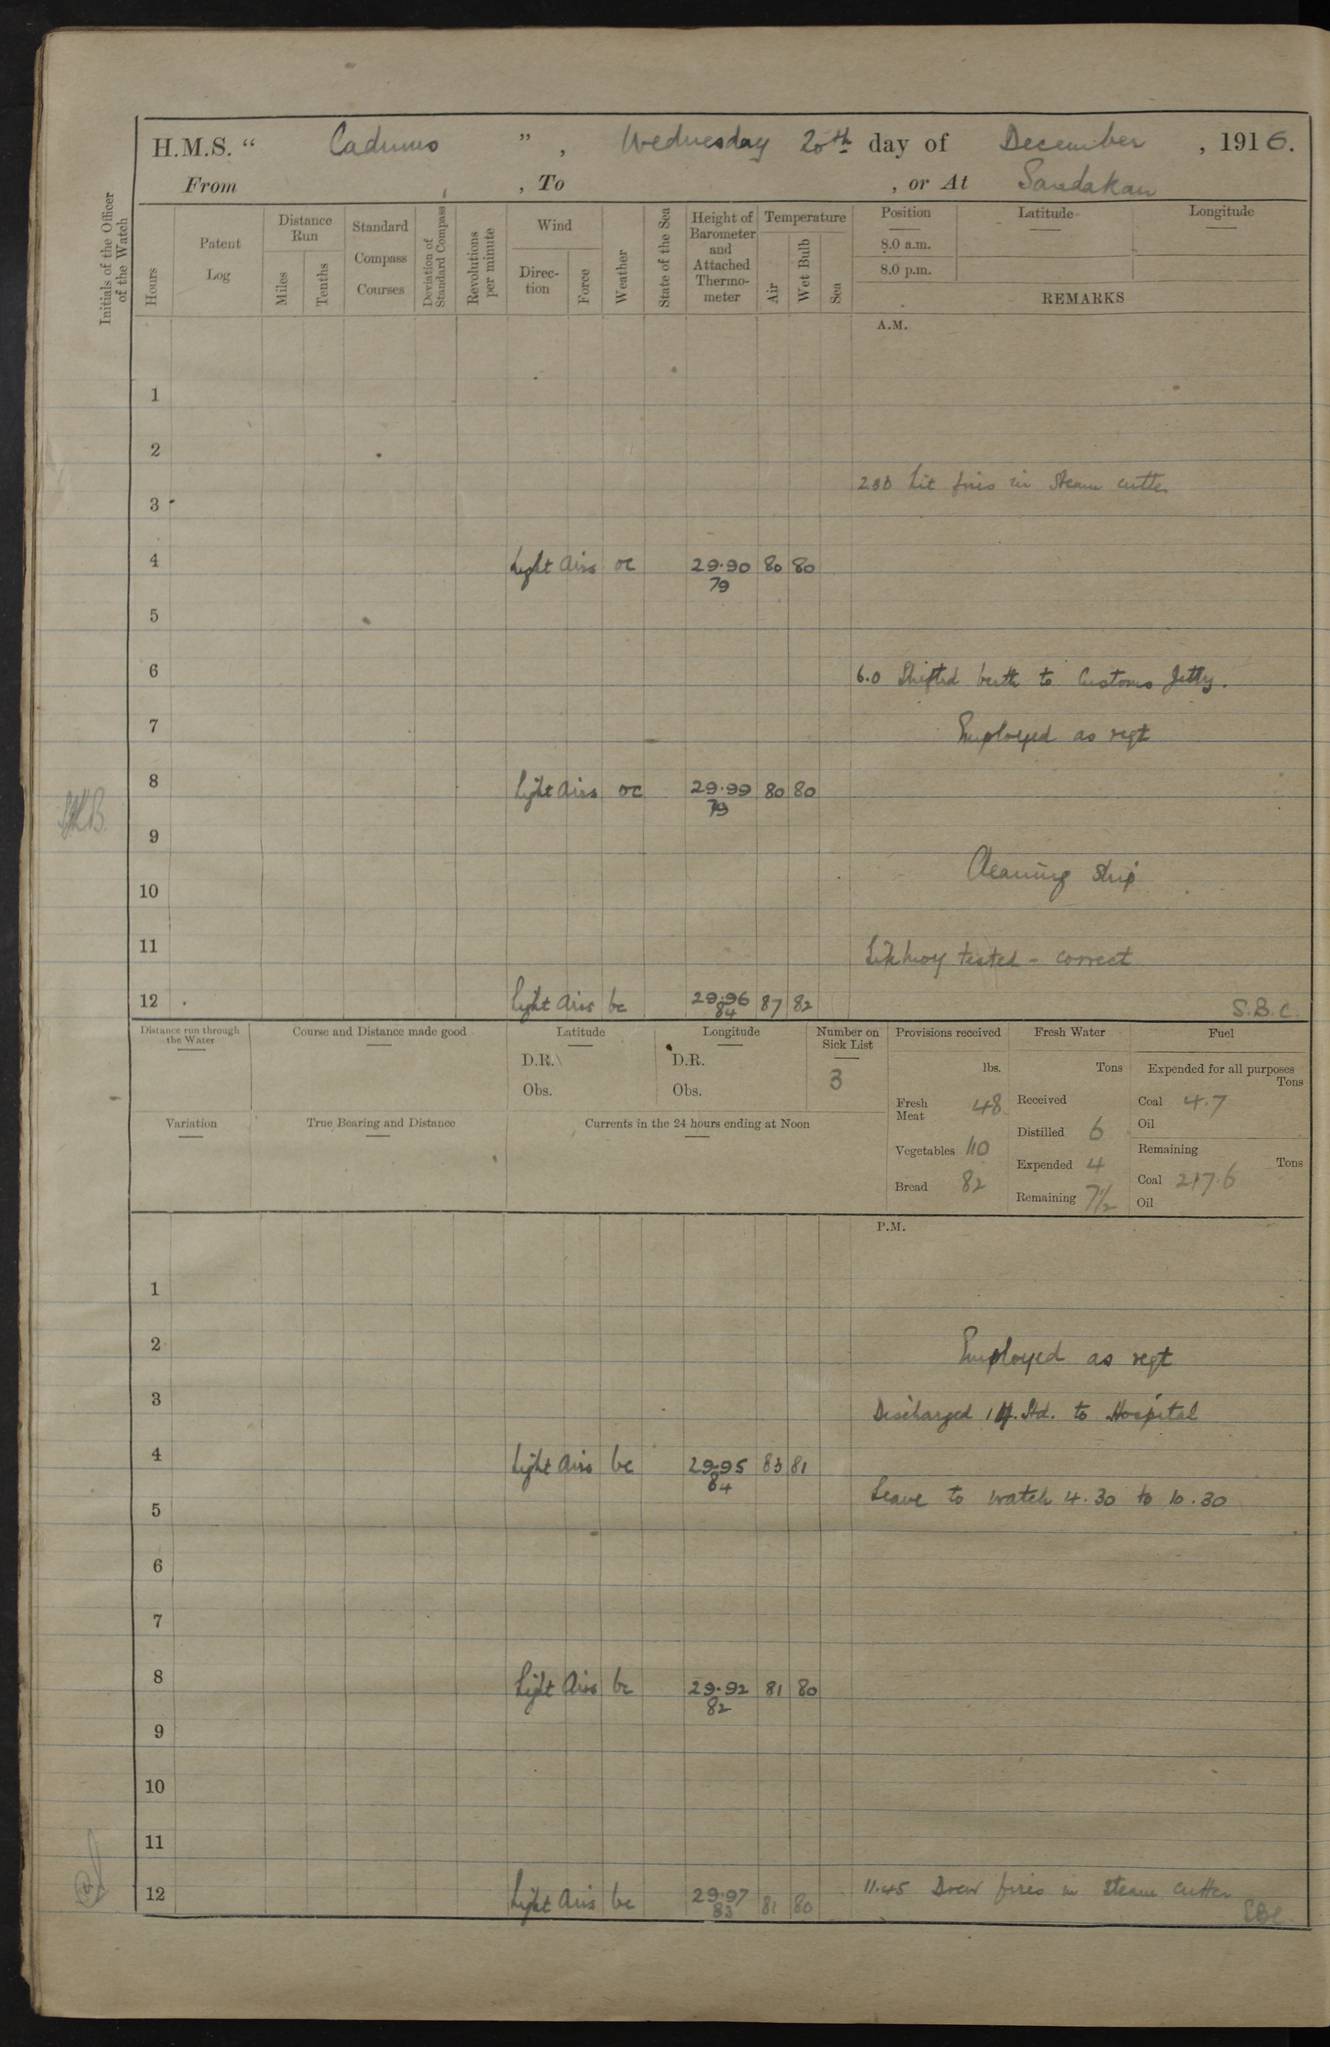 H.M.S. " Cadmus ", Wednesday 20th day of December, 1916.
From , To , or At Sandakan
Initials of the Officer of the Watch
Hours
Patent Log
Distance Run
Miles
Tenths
Standard Compass Courses
Deviation of Standard Compass
Revolutions per minute
Wind
Direction
Force
Weather
State of the Sea
Height of Barometer and Attached Thermometer
Temperature
Air
Wet Bulb
Sea
Position Latitude Longitude
8.0 a.m.
8.0 p.m.
REMARKS
A.M.
1
2
2.30 Lit fires in Steam cutter
3
4 Light Airs oc 29.90 80 80
79
5
6 6.0 Shifted berth to Customs Jetty.
7 Employed as reqt
8 Light Airs oc 29.99 80 80
79
9
Cleaning Ship
10
11 Lifebuoy tested - correct
12 Light Airs bc 29.96 87 82 S.B.C.
84
Distance run through the Water
Course and Distance made good
Latitude
D.R.
Obs.
Longitude
D.R.
Obs.
Number on Sick List
3
Provisions received
lbs.
Fresh Meat 48
Vegetables 110
Bread 82
Fresh Water
Tons
Received
Distilled 6
Expended 4
Remaining 71/2
Fuel
Expended for all purposes
Tons
Coal 4.7
Oil
Remaining
Tons
Coal 217.6
Oil
Variation
True Bearing and Distance
Currents in the 24 hours ending at Noon
P.M.
1
2 Employed as reqt
3 Discharged 1 Std. to Hospital
4 Light Airs bc 29.95 83 81
84
Leave to watch 4.30 to 10.30
5
6
7
8 Light Airs bc 29.92 81 80
82
9
10
11
12 Light Airs bc 29.97 81 80 11.45 Drew fires in Steam Cutter
83
SBC